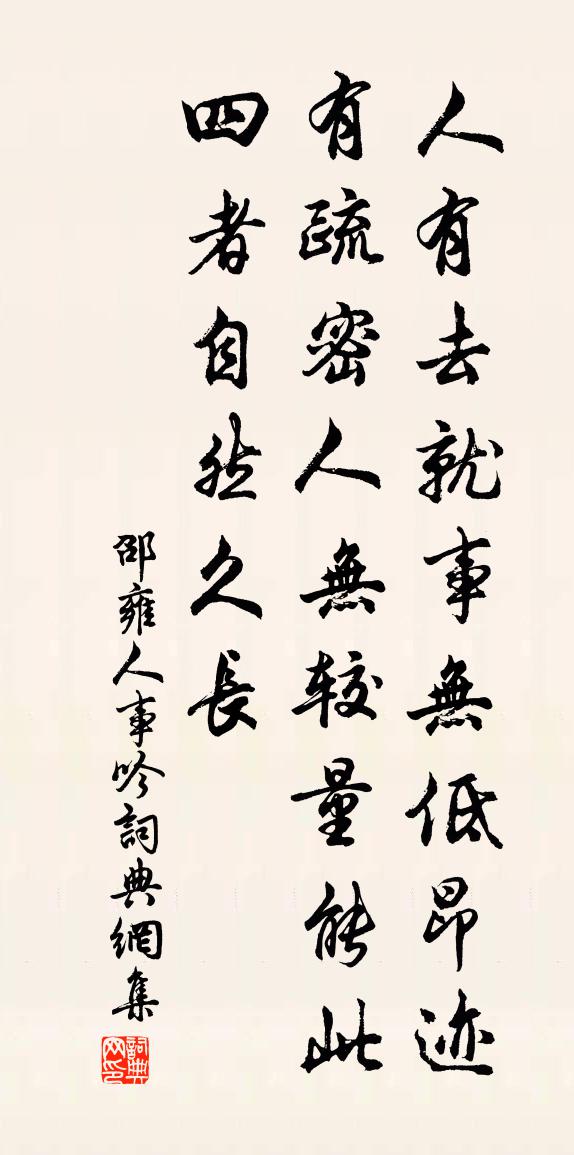 人有去就事無低昂迹
有疏密人無较量能此
四者自然久長
邵雍人事吟詞典網集
詞典网印